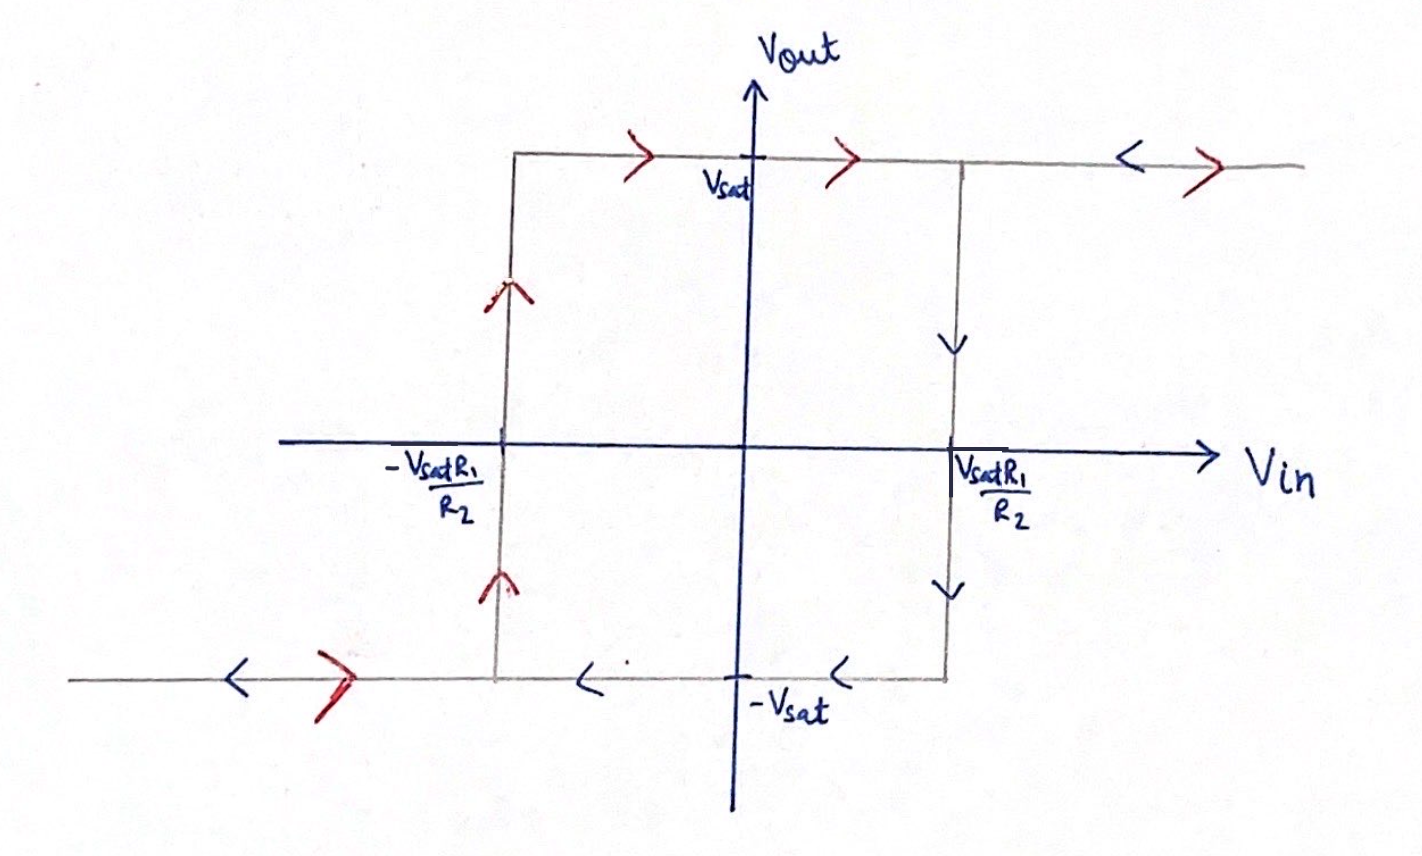 Vout
Vsat
-VsatR1
R2
VsatR1
R2
Vin
-Vsat